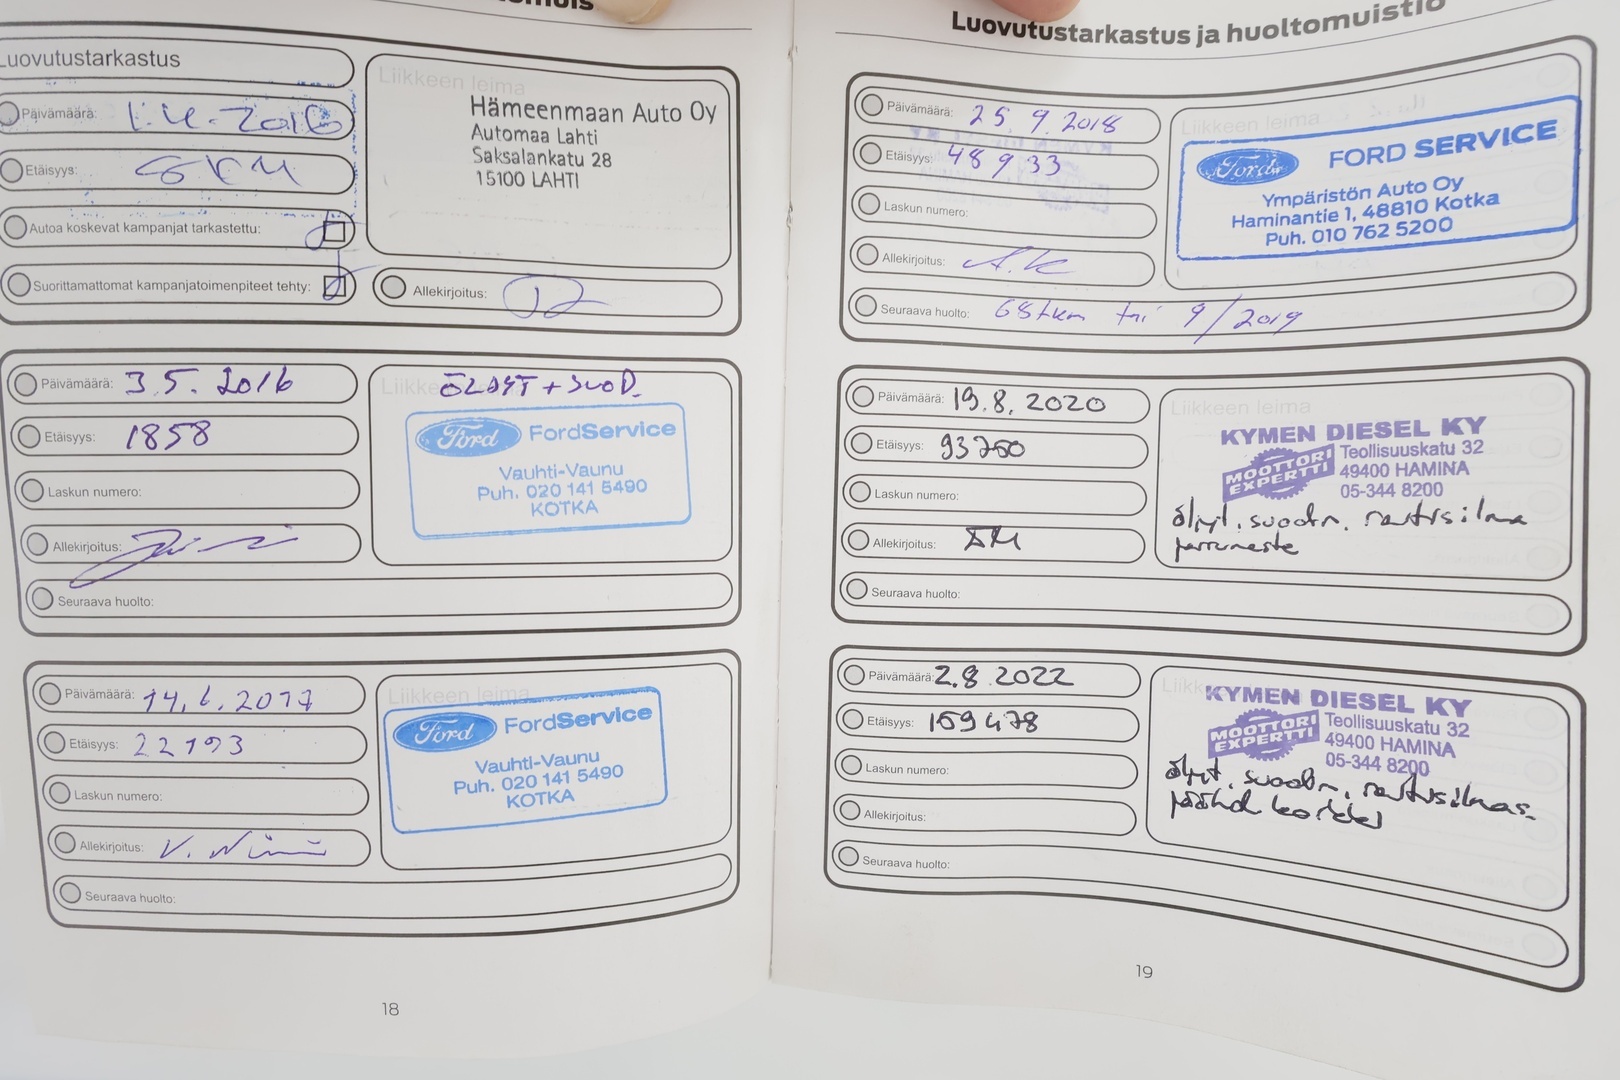 Luovutustarkastus
Päivämäärä: 1.4.2016
Etäisyys: 6 KM
Autoa koskevat kampanjat tarkastettu:
Suorittamattomat kampanjatoimenpiteet tehty:
Liikkeen leima
Hämeenmaan Auto Oy
Automaa Lahti
Saksalankatu 28
15100 LAHTI
Allekirjoitus:
Päivämäärä: 3.5.2016
Etäisyys: 1858
Laskun numero:
Allekirjoitus:
Seuraava huolto:
Liikkeen leima
ÖLJYT + SUOD.
Ford FordService
Vauhti-Vaunu
Puh. 020 141 5490
KOTKA
Päivämäärä: 14.6.2017
Etäisyys: 22193
Laskun numero:
Allekirjoitus:
Seuraava huolto:
Liikkeen leima
Ford FordService
Vauhti-Vaunu
Puh. 020 141 5490
KOTKA
18
Luovutustarkastus ja huoltomuistio
Päivämäärä: 25.9.2018
Etäisyys: 48933
Laskun numero:
Allekirjoitus: A.K
Seuraava huolto: 68tkm tai 9/2019
Liikkeen leima
Ford FORD SERVICE
Ympäristön Auto Oy
Haminantie 1, 48810 Kotka
Puh. 010 762 5200
Päivämäärä: 19.8.2020
Etäisyys: 93750
Laskun numero:
Allekirjoitus:
Seuraava huolto:
Liikkeen leima
KYMEN DIESEL KY
MOOTTORI EXPERTTI
Teollisuuskatu 32
49400 HAMINA
05-344 8200
öljyt, suodn, raitisilma
jarruneste
Päivämäärä: 2.8.2022
Etäisyys: 159478
Laskun numero:
Allekirjoitus:
Seuraava huolto:
KYMEN DIESEL KY
MOOTTORI EXPERTTI
Teollisuuskatu 32
49400 HAMINA
05-344 8200
öljyt, suodn, raitisilmas.
jakohd kaikki
19